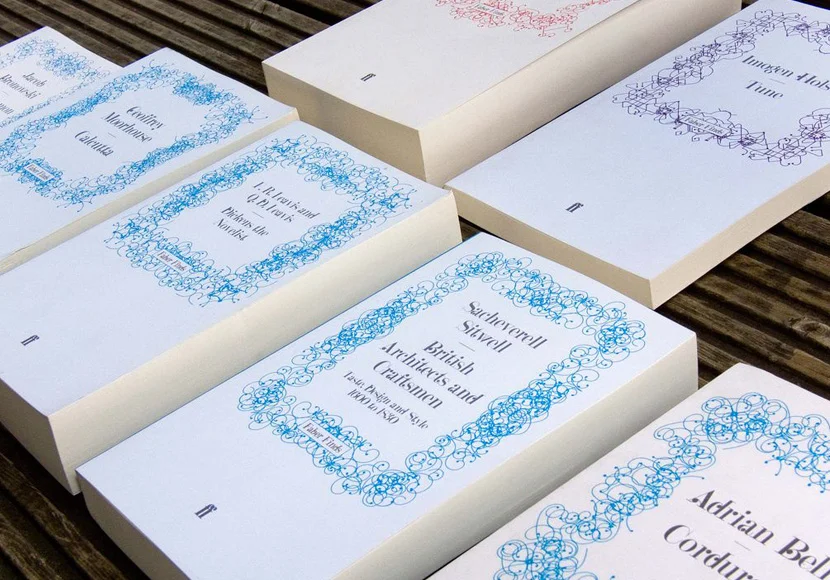 Geoffrey
Moorhouse
Calcutta
Faber Finds
ff
F. R. Leavis and
Q. D. Leavis
Dickens the
Novelist
Faber Finds
ff
Imogen Hols
Tune
Faber Finds
ff
Sacheverell
Sitwell
British
Architects and
Craftsmen
Taste, Design and Style
1600 to 1830
Faber Finds
ff
Adrian Bell
Cordur